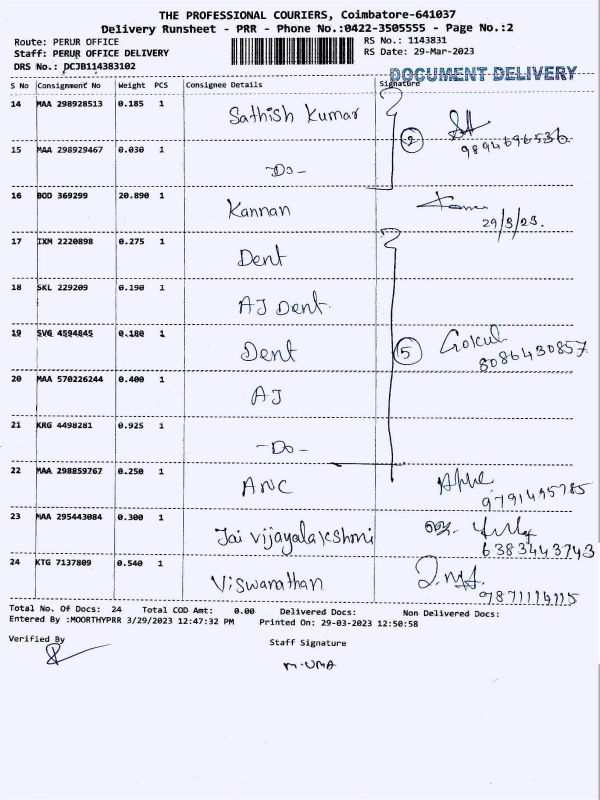 THE PROFESSIONAL COURIERS, Coimbatore-641037
Delivery Runsheet - PRR - Phone No.:0422-3505555 - Page No.:2
Route: PERUR OFFICE
RS No.: 1143831
Staff: PERUR OFFICE DELIVERY
RS Date: 29-Mar-2023
DRS No.: DCJB114383102
DOCUMENT DELIVERY
S No Consignment No Weight PCS Consignee Details Signature
14 MAA 298928513 0.185 1 Sathish Kumar
2 9894696536
15 MAA 298929467 0.030 1 -Do-
16 BOD 369299 20.890 1 Kannan
29/3/23.
17 IXM 2220898 0.275 1 Dent
18 SKL 229209 0.190 1 AJ Dent.
19 SVG 4594845 0.180 1 Dent
5 Gokul
8086430857
20 MAA 570226244 0.400 1 AJ
21 KRG 4498281 0.925 1 -Do-
22 MAA 298859767 0.250 1 ANC
9791495785
23 MAA 295443084 0.300 1 Jai vijayalakshmi
6383443743
24 KTG 7137809 0.540 1 Viswanathan
9871114115
Total No. Of Docs: 24 Total COD Amt: 0.00 Delivered Docs: Non Delivered Docs:
Entered By :MOORTHYPRR 3/29/2023 12:47:32 PM Printed On: 29-03-2023 12:50:58
Verified By
Staff Signature
M.UMA